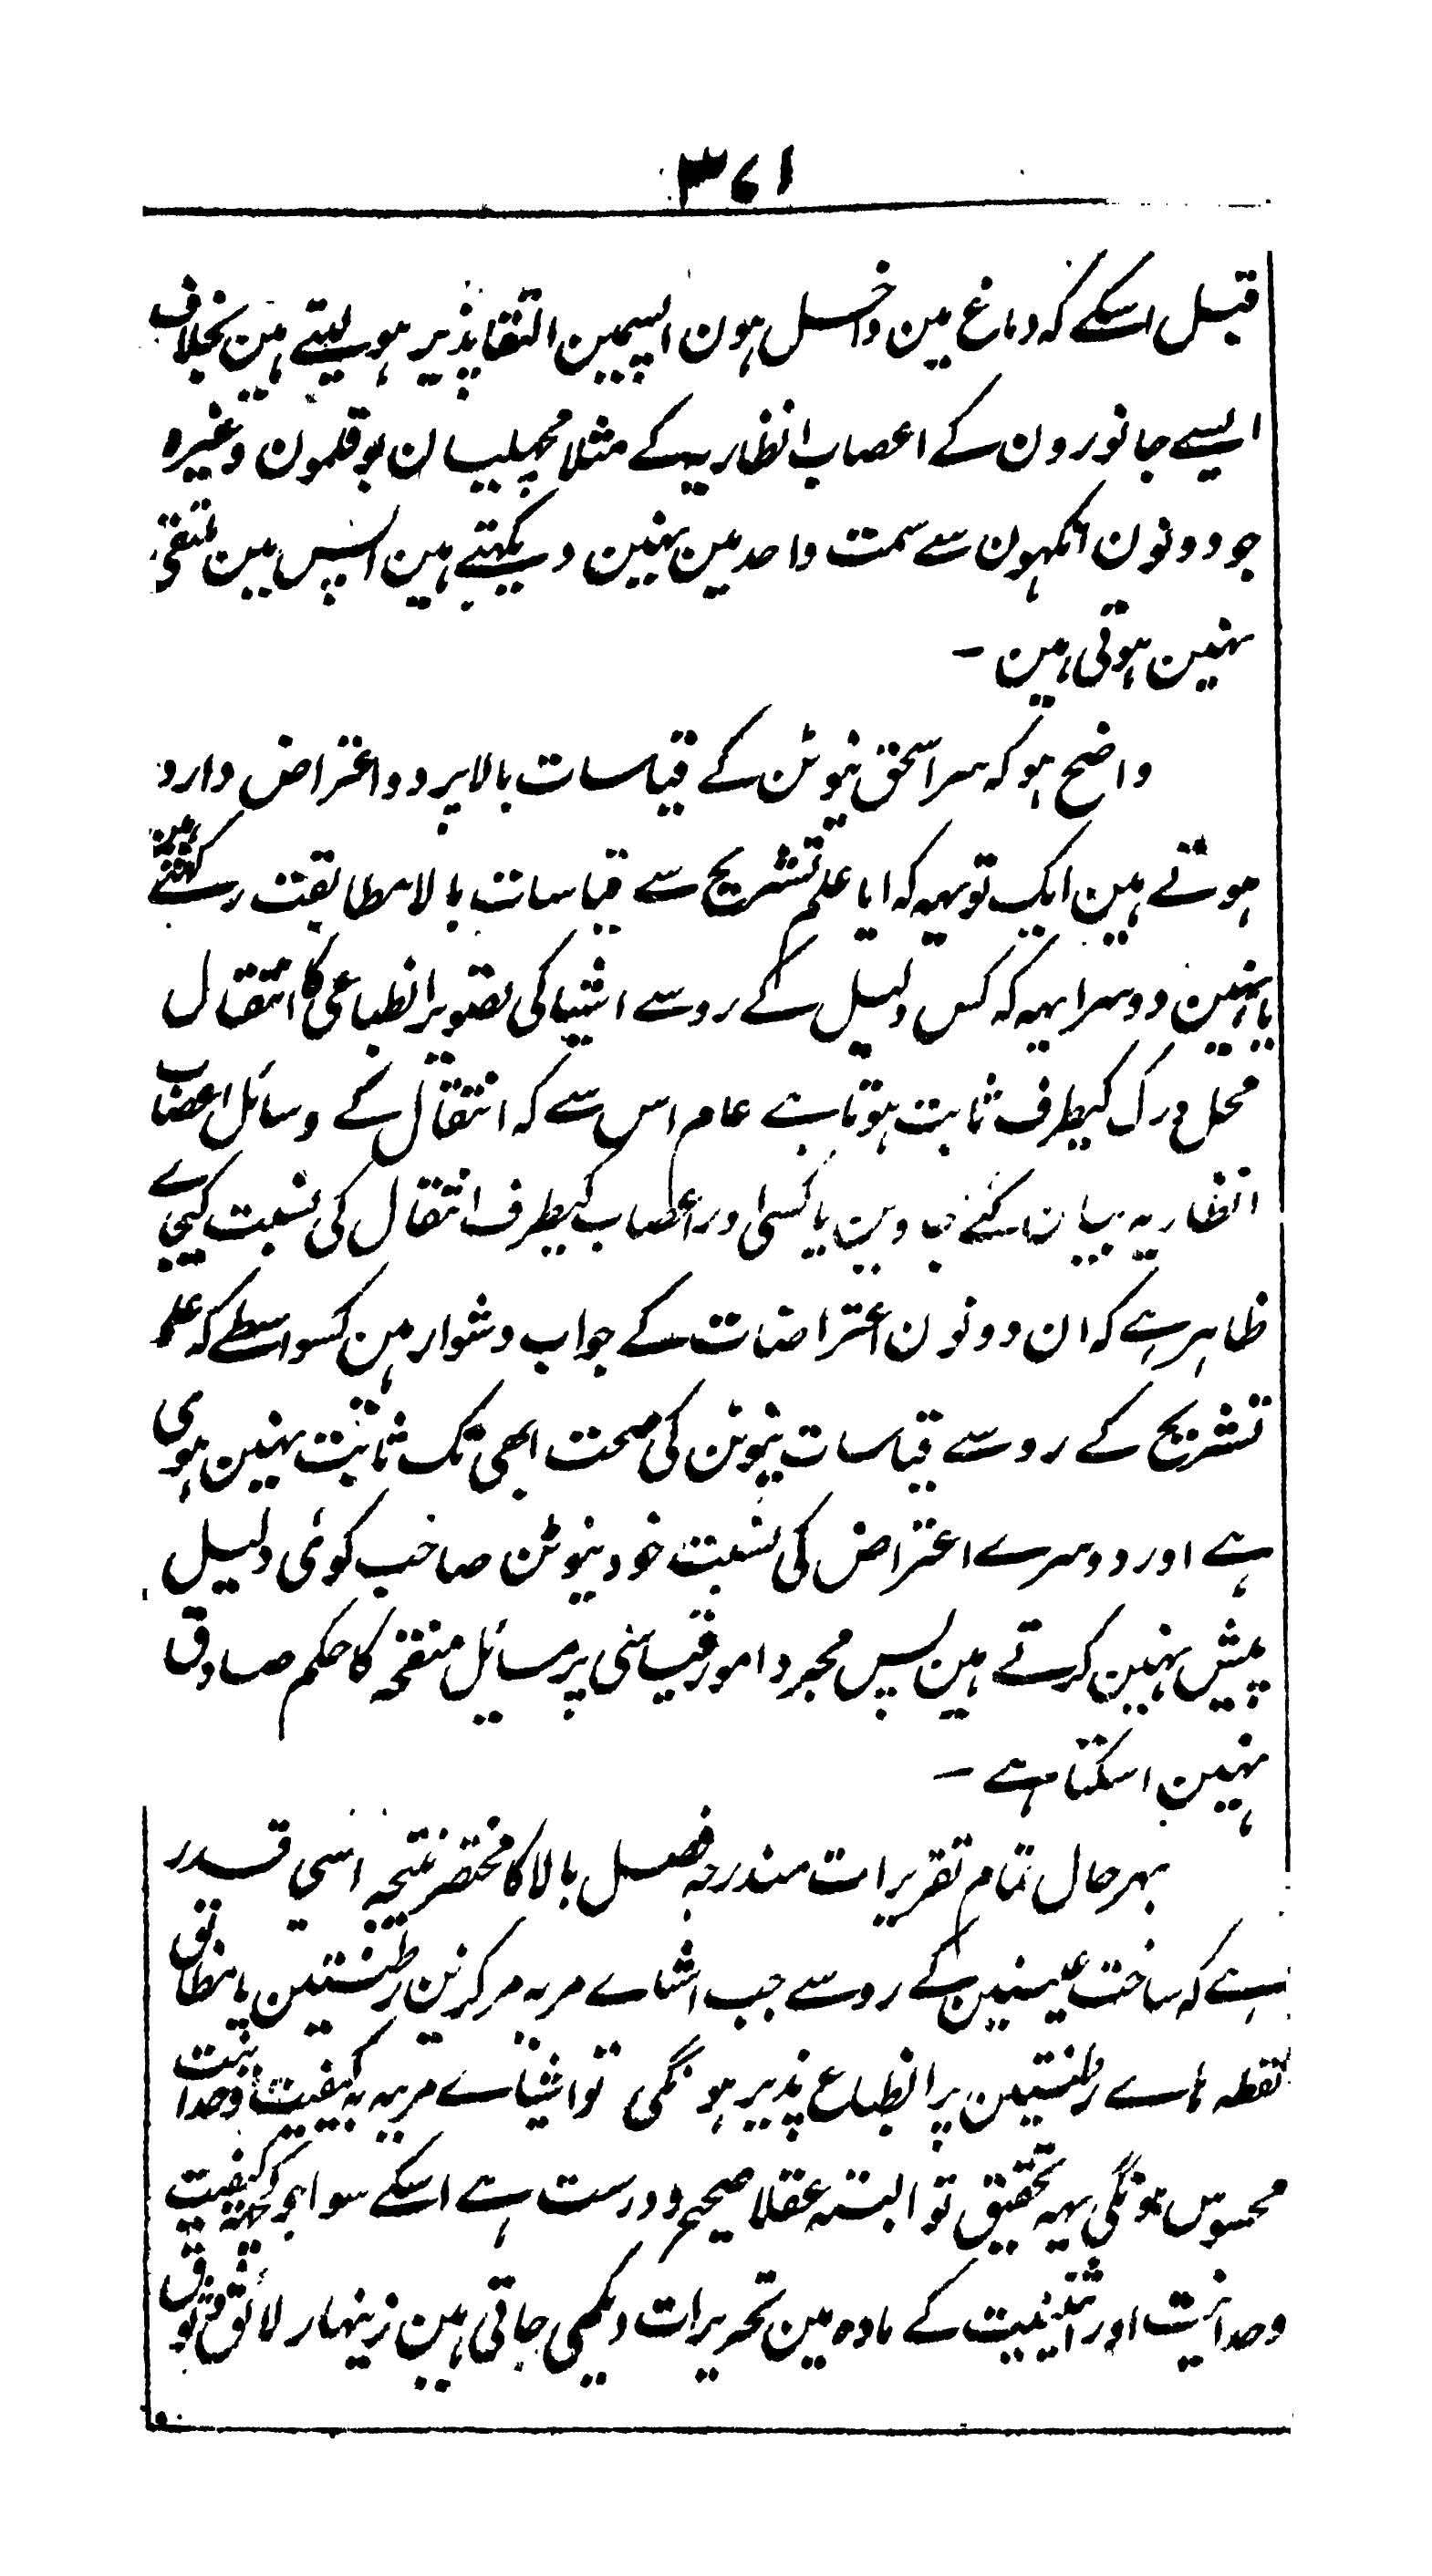 ۳۷۱
قبل اسکے کہ دماغ مین داخل ہون اپسمین التقا پذیر ہو لیتے ہین بخلاف
ایسے جانورون کے اعصاب انظاریہ کے مثلا مچھلیان بوقلمون وغیرہ
جو دونون انکہون سے سمت واحد مین نہین دیکہتے ہین اپس مین ملتقی
نہین ہوتی ہین -
واضح ہو کہ سر اسحق نیوٹن کے قیاسات بالا پر دو اعتراض وارد
ہوتے ہین ایک تو یہہ کہ ایا علم تشریح سے قیاسات بالا مطابقت رکہتے ہین
یا نہین دوسرا یہہ کہ کس دلیل کے رو سے اشیا کی تصویر انطباعی کا انتقال
محل درک کیطرف ثابت ہوتا ہے عام اس سے کہ انتقال کے وسائل اعصاب
انظاریہ بیان کئے جاوین یا کسی اور اعصاب کیطرف انتقال کی نسبت کیجاے
ظاہر ہے کہ ان دونون اعتراضات کے جواب دشوار ہن کسواسطے کہ علم
تشریح کے رو سے قیاسات نیوٹن کی صحت ابھی تک ثابت نہین ہوی
ہے اور دوسرے اعتراض کی نسبت خود نیوٹن صاحب کوئی دلیل
پیش نہین کرتے ہین پس مجرد امور قیاسی پر مسایل منقحہ کا حکم صادق
نہین اسکتا ہے -
بہر حال تمام تقریرات مندرجہ فصل بالا کا مختصر نتیجہ اسی قدر
ہے کہ ساخت عینین کے رو سے جب اشاے مریہ مرکزین رٹنتین یا مطابق
نقطہ ہاے رٹنتین پر انطباع پذیر ہونگی تو اشیاے مریہ بہ کیفیت وحدانیت
محسوس ہونگی یہہ تحقیق تو البتہ عقلا صحیح و درست ہے اسکے سوا جو کچہہ کیفیت
وحدانیت اور اثنینیت کے مادہ مین تحریرات دیکھی جاتی ہین زینہار لائق وثوق